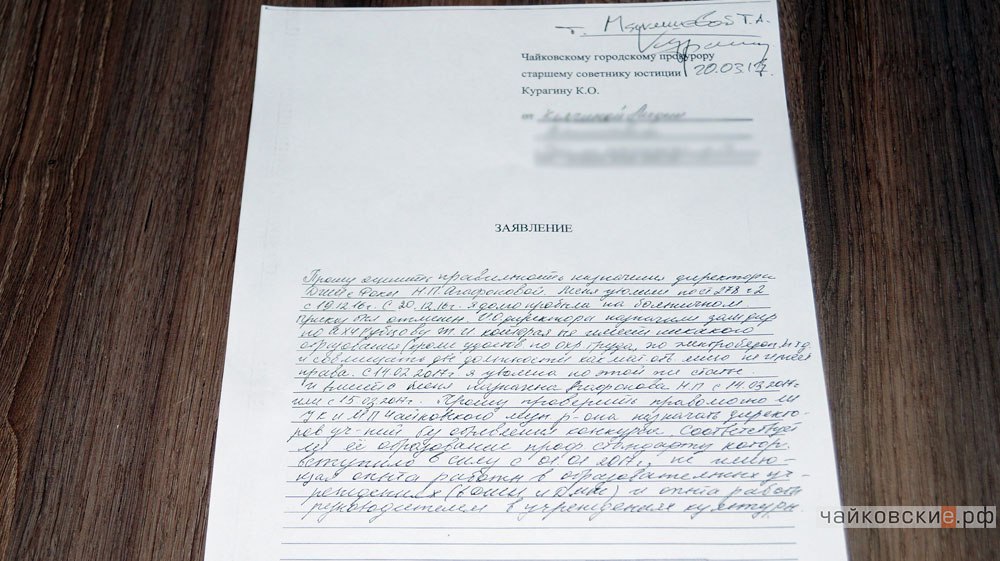 т. Мякишевой Т.А.
20.03.17
Чайковскому городскому прокурору
старшему советнику юстиции
Курагину К.О.
от
ЗАЯВЛЕНИЕ
Прошу оценить правильность назначения директора
Н.П. Агафоновой Меня уволили по ст 278 ч 2
с 19.12.16г. С 20.12.16г. я до на больничном
приказ был отменен. ИО директора назначили зам дир
по АХЧ которая не имеет никакого
образования (кроме удостов по охр. труда, по электробезоп.
и совмещать две должности как мат. отв. лицо не имеет
права. С 14.03 2017г я уволена по этой же статье
и вместо меня назначена Агафонова Н.П с 14.03.2017г
или с 15.03.2017г. Прошу проверить правомочно ли
УК и МП Чайковского мун р-она назначать директо-
ров уч-ний без объявления конкурса Соответствует
ли её образование проф стандарту котор.
вступило в силу с 01.01 2017г, не имею-
щая опыта работы в образовательных уч-
реждениях и опыта работы
руководителем в учреждениях культуры.
чайковские.рф